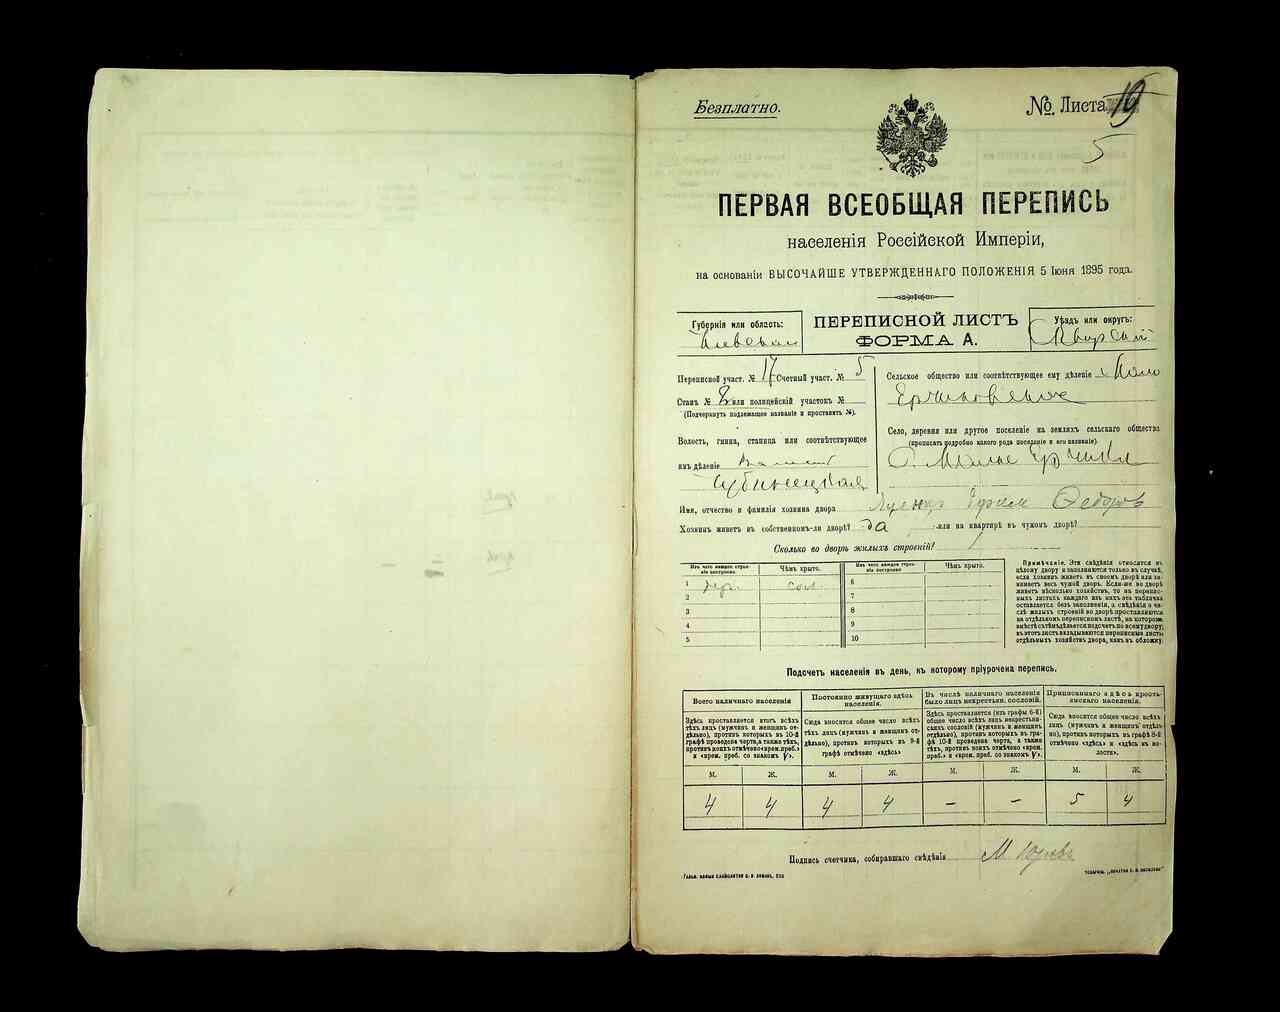 Безплатно.
№ Листа 19
5
ПЕРВАЯ ВСЕОБЩАЯ ПЕРЕПИСЬ
населенія Россійской Имперіи,
на основаніи ВЫСОЧАЙШЕ УТВЕРЖДЕННАГО ПОЛОЖЕНІЯ 5 Іюня 1895 года.
Губернія или область:
Кіевская
ПЕРЕПИСНОЙ ЛИСТЪ
ФОРМА А.
Уѣздъ или округъ:
Сквирскій
Переписной участ. № 17 Счетный участ. № 5
Станъ № 2 или полицейскій участокъ №
(Подчеркнуть подлежащее названіе и проставить №).
Волость, гмина, станица или соотвѣтствующее
имъ дѣленіе
Сельское общество или соотвѣтствующее ему дѣленіе Мало
Ерчиковское
Село, деревня или другое поселеніе на земляхъ сельскаго общества
(прописать подробно какого рода поселеніе и его названіе).
С. Малые Ерчики
Имя, отчество и фамилія хозяина двора Ефим Федоров
Хозяинъ живетъ въ собственномъ-ли дворѣ? да или на квартирѣ въ чужомъ дворѣ?
Сколько во дворѣ жилыхъ строеній? 1
Изъ чего каждое строеніе построено.
Чѣмъ крыто.
Изъ чего каждое строеніе построено.
Чѣмъ крыто.
1 дер. сол. 6
2 7
3 8
4 9
5 10
Примѣчаніе. Эти свѣдѣнія относятся къ
цѣлому двору и заполняются только въ случаѣ,
если хозяинъ живетъ въ своемъ дворѣ или занимаетъ
весь чужой дворъ. Если-же во дворѣ
живетъ нѣсколько хозяйствъ, то на переписныхъ
листахъ каждаго изъ нихъ эта табличка
оставляется безъ заполненія, а свѣдѣнія о числѣ
жилыхъ строеній во дворѣ проставляются
на отдѣльномъ переписномъ листѣ, на которомъ
вмѣстѣ съ тѣмъ дѣлается подсчетъ по всему двору;
въ этотъ листъ вкладываются переписные листы
отдѣльныхъ хозяйствъ двора, какъ въ обложку.
Подсчетъ населенія въ день, къ которому пріурочена перепись.
Всего наличнаго населенія
Постоянно живущаго здѣсь населенія.
Въ числѣ наличнаго населенія было лицъ некрестьян. сословій.
Приписаннаго здѣсь крестьянскаго населенія.
Здѣсь проставляется итогъ всѣхъ
тѣхъ лицъ (мужчинъ и женщинъ отдѣльно),
противъ которыхъ въ 10-й
графѣ проведена черта, а также тѣхъ,
противъ коихъ отмѣчено «врем. преб.»
и «врем. преб. со знакомъ V».
Сюда вносится общее число всѣхъ
тѣхъ лицъ (мужчинъ и женщинъ отдѣльно),
противъ которыхъ въ 9-й
графѣ отмѣчено «здѣсь»
Здѣсь проставляется (изъ графы 6-й)
общее число всѣхъ лицъ некрестьянскихъ
сословій (мужчинъ и женщинъ
отдѣльно), противъ которыхъ въ графѣ
10-й проведена черта, а также
тѣхъ, противъ коихъ отмѣчено «врем.
преб.» и «врем. преб. со знакомъ V».
Сюда вносится общее число всѣхъ
лицъ (мужчинъ и женщинъ отдѣльно),
противъ которыхъ въ графѣ 8-й
отмѣчено «здѣсь» и «здѣсь въ волости».
М. Ж. М. Ж. М. Ж. М. Ж.
4 4 4 4 – – 5 4
Подпись счетчика, собиравшаго свѣдѣнія